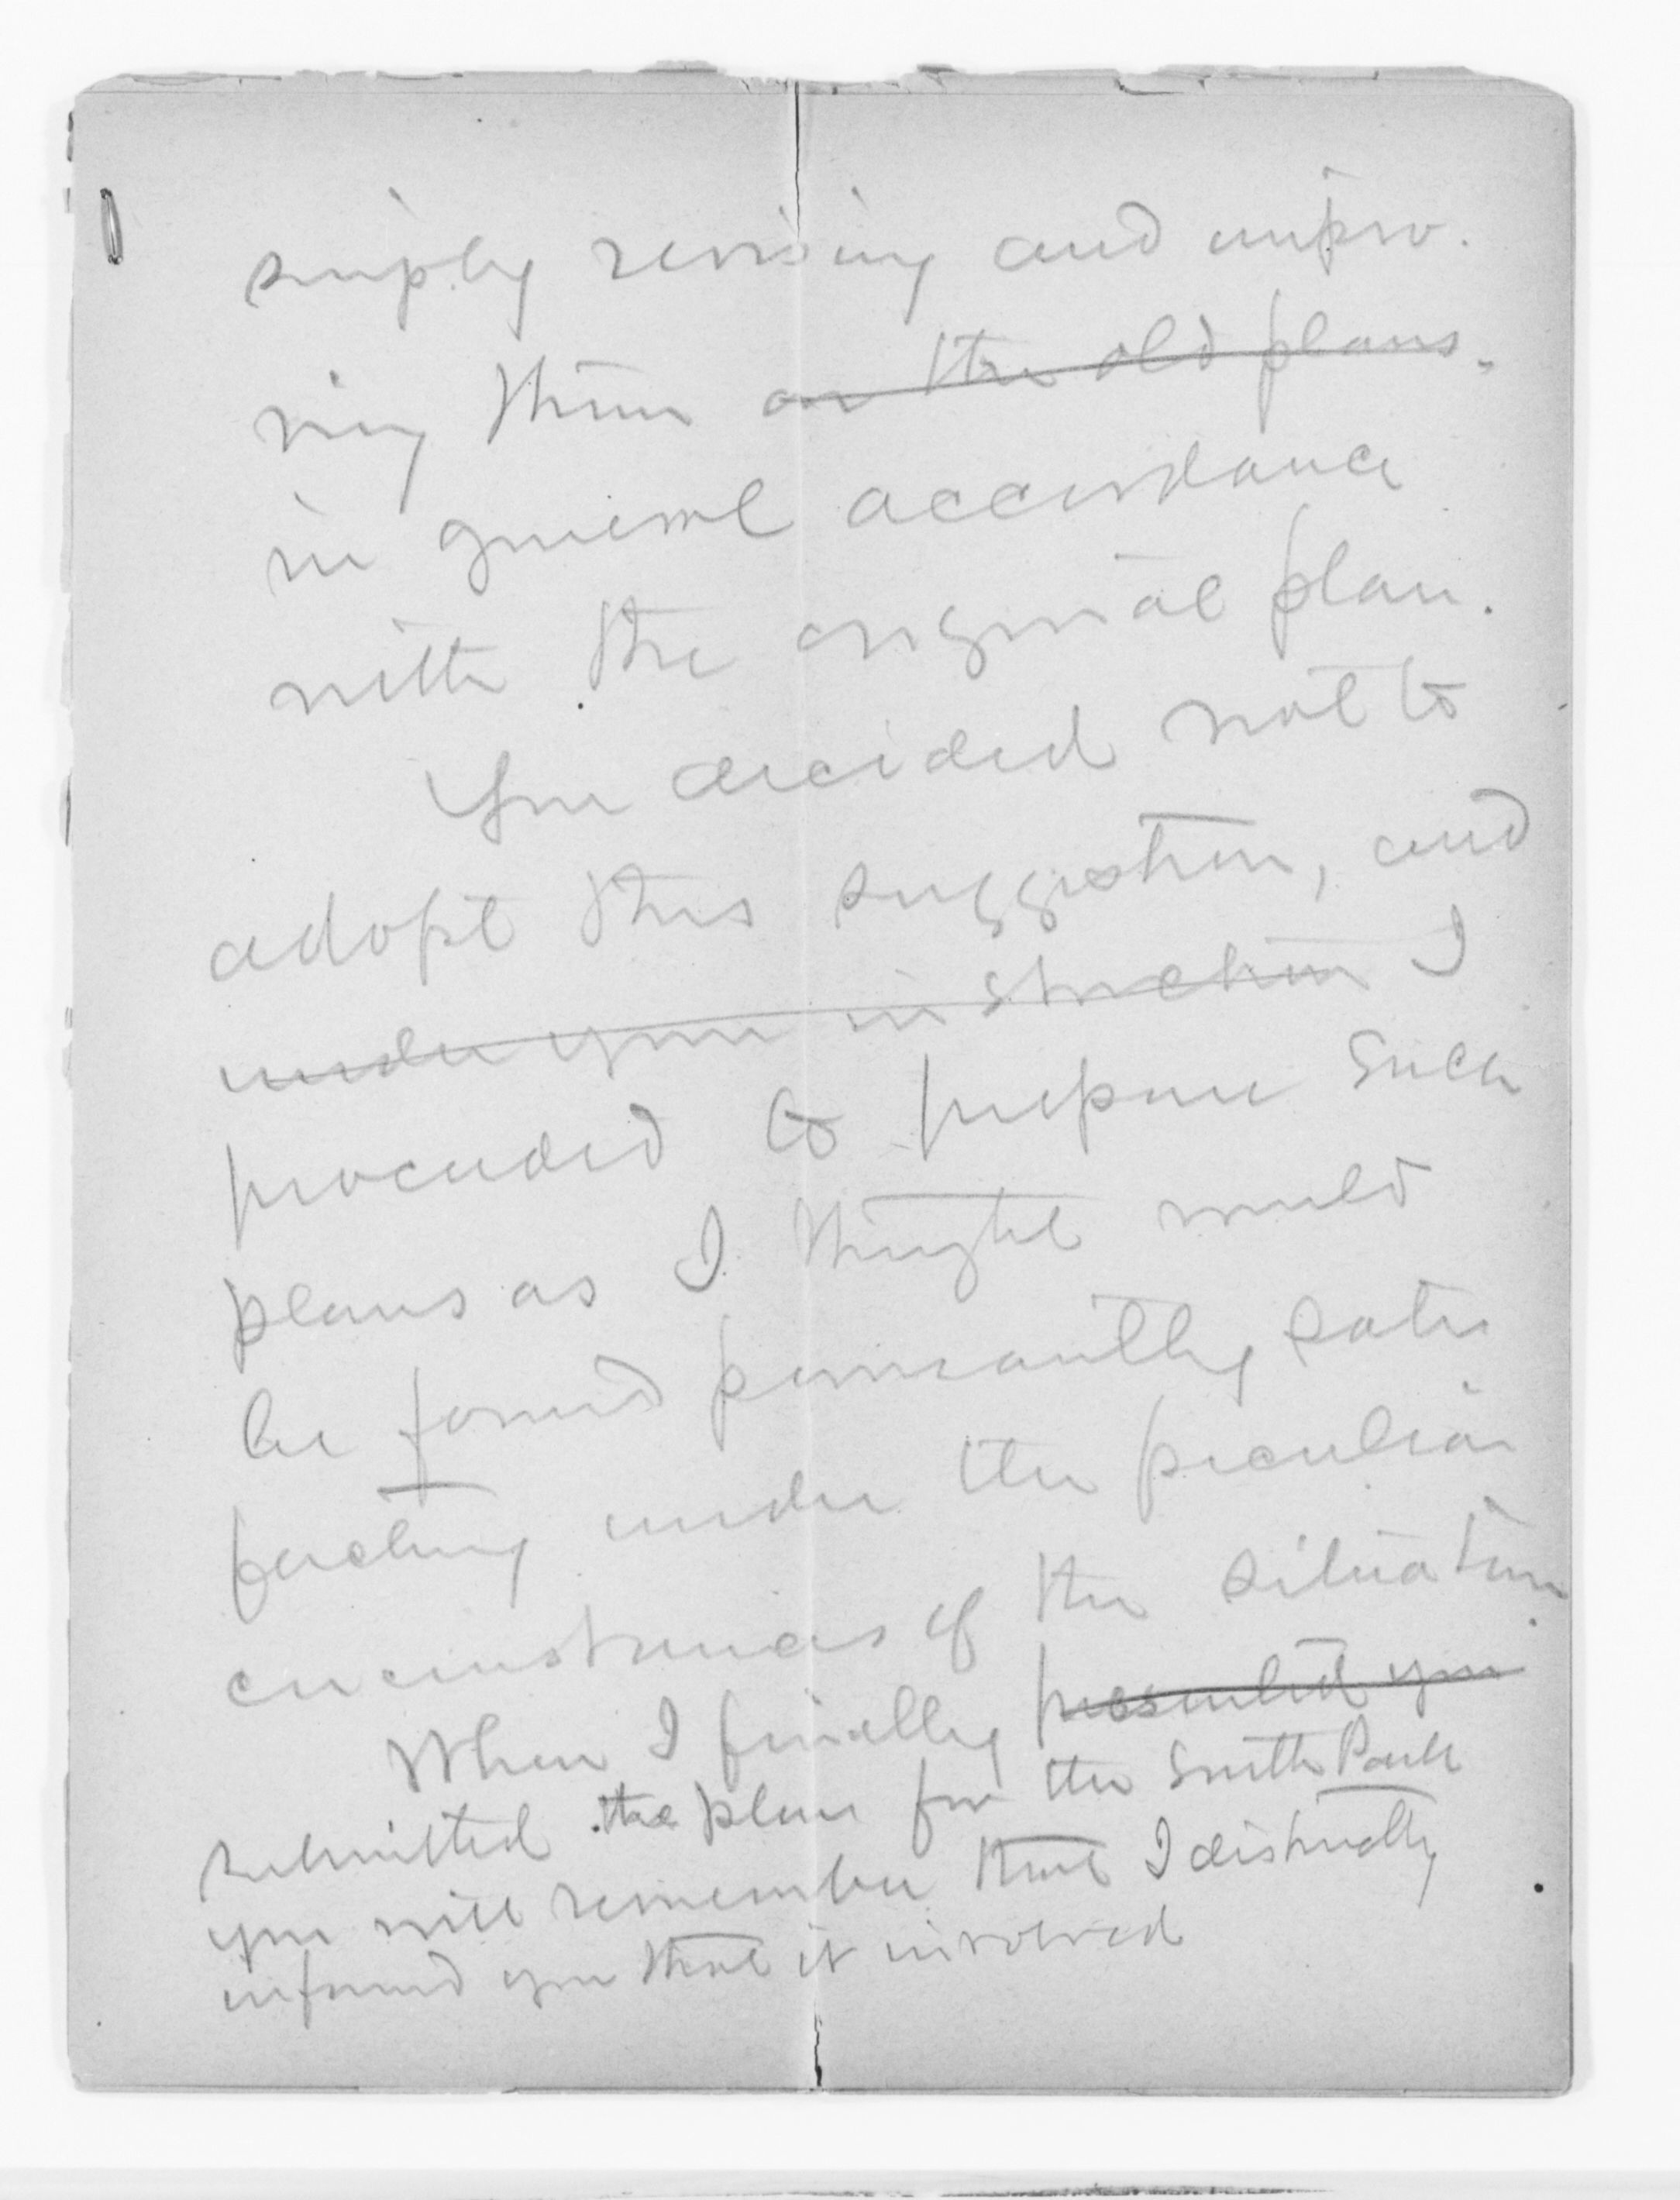 simply revising and impro-
ving them ~~on the old plans.~~
in general accordance
with the original plan.
You decided not to
adopt this suggestion, and
~~under your instruction~~ I
proceeded to prepare such
plans as I thought would
be found permanently satis
factory under the peculiar
circumstances of the situation.
When I finally ~~presented you~~
submitted the plan for the South Park
you will remember that I distinctly
informed you that it involved